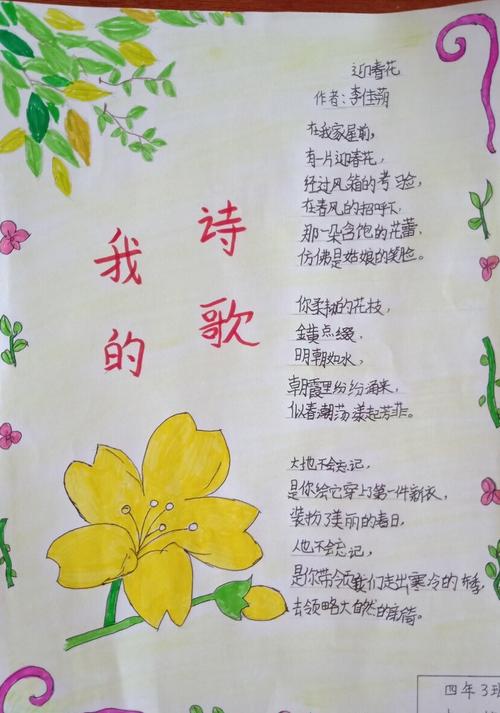 我的
诗歌
迎春花
作者：李佳蒴
在我家屋前，
有一片迎春花，
经过风箱的考验，
在春风的招呼下，
那一朵含饱的花蕾，
仿佛是姑娘的笑脸。
你柔韧的花枝，
金黄点缀，
明朝如水，
朝霞里纷纷涌来，
似春潮荡漾起芳菲。
大地不会忘记，
是你给它穿上第一件新衣，
装扮了美丽的春日，
人也不会忘记，
是你带领我们走出寒冷的冬季，
去领略大自然的旖旎。
四年3班